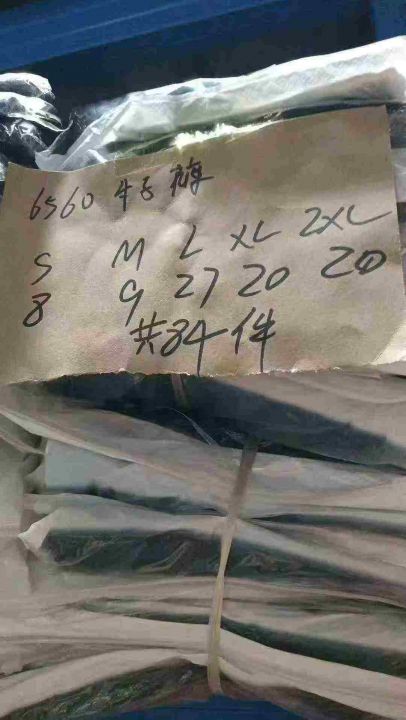 6560 牛子裤
S M L XL 2XL
8 9 27 20 20
共84件